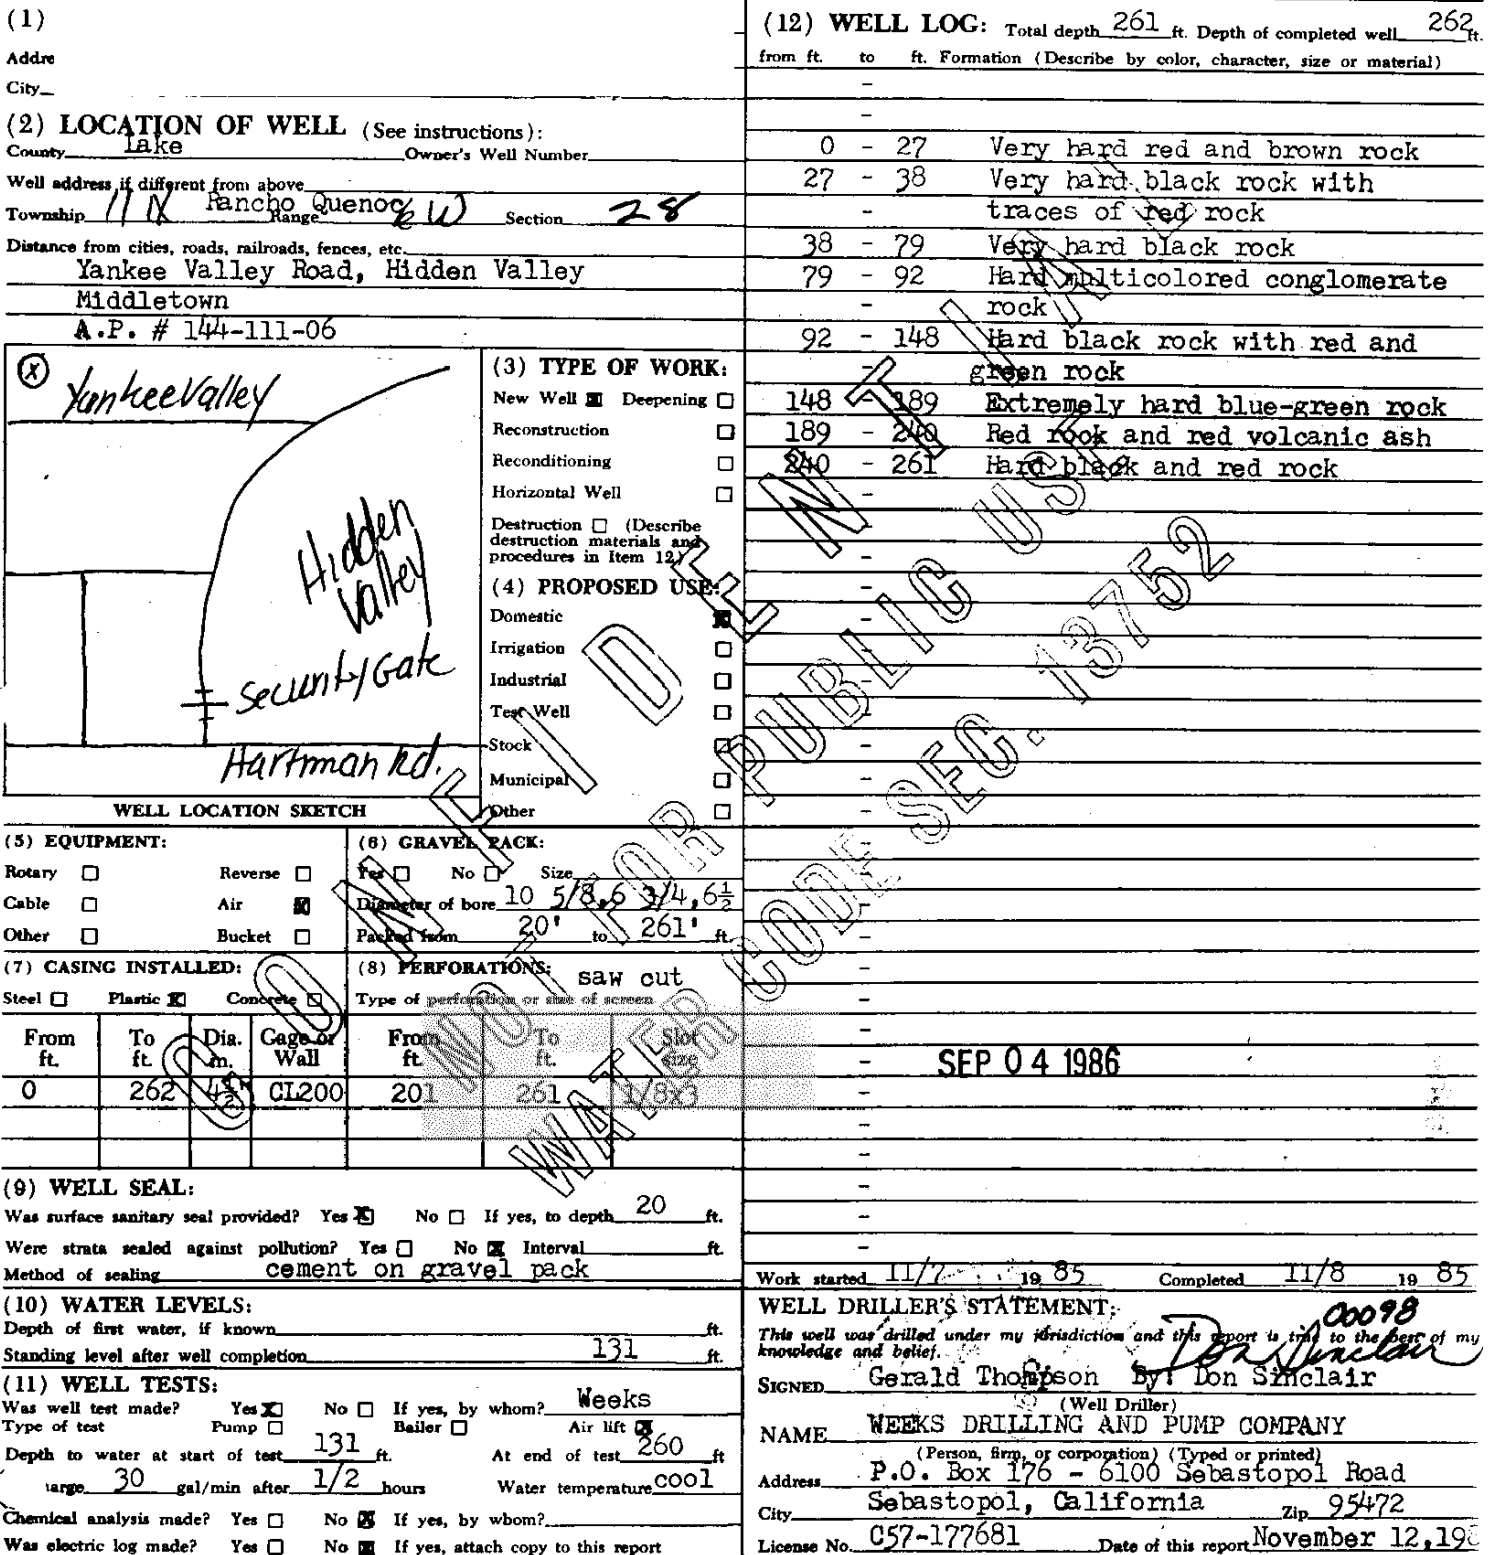 (1)
Addre
City
(2) LOCATION OF WELL (See instructions):
County Lake Owner's Well Number
Well address if different from above
Township 11 N Rancho Quenoc Range 6 W Section 28
Distance from cities, roads, railroads, fences, etc.
Yankee Valley Road, Hidden Valley
Middletown
A.P. # 144-111-06
(X) Yankee Valley
Hidden
Valley
Security Gate
Hartman Rd.
WELL LOCATION SKETCH
(3) TYPE OF WORK:
New Well Deepening
Reconstruction
Reconditioning
Horizontal Well
Destruction (Describe
destruction materials and
procedures in Item 12)
(4) PROPOSED USE:
Domestic
Irrigation
Industrial
Test Well
Stock
Municipal
Other
(5) EQUIPMENT:
Rotary Reverse
Cable Air
Other Bucket
(6) GRAVEL PACK:
Yes No Size
Diameter of bore 10 5/8,6 3/4,6½
Packed from 20' to 261' ft.
(7) CASING INSTALLED:
Steel Plastic Concrete
From ft. To ft. Dia. in. Gage or Wall
0 262 4½ CL200
(8) PERFORATIONS: saw cut
Type of perforation or size of screen
From ft. To ft. Slot size
201 261 1/8x3
(9) WELL SEAL:
Was surface sanitary seal provided? Yes No If yes, to depth 20 ft.
Were strata sealed against pollution? Yes No Interval ft.
Method of sealing cement on gravel pack
(10) WATER LEVELS:
Depth of first water, if known ft.
Standing level after well completion 131 ft.
(11) WELL TESTS:
Was well test made? Yes No If yes, by whom? Weeks
Type of test Pump Bailer Air lift
Depth to water at start of test 131 ft. At end of test 260 ft
arge 30 gal/min after 1/2 hours Water temperature cool
Chemical analysis made? Yes No If yes, by whom?
Was electric log made? Yes No If yes, attach copy to this report
(12) WELL LOG: Total depth 261 ft. Depth of completed well 262 ft.
from ft. to ft. Formation (Describe by color, character, size or material)
0 - 27 Very hard red and brown rock
27 - 38 Very hard black rock with
- traces of red rock
38 - 79 Very hard black rock
79 - 92 Hard multicolored conglomerate
- rock
92 - 148 Hard black rock with red and
green rock
148 - 189 Extremely hard blue-green rock
189 - 240 Red rock and red volcanic ash
240 - 261 Hard black and red rock
CONFIDENTIAL
NOT FOR PUBLIC USE
WATER CODE SEC. 13752
SEP 04 1986
Work started 11/7 19 85 Completed 11/8 19 85
WELL DRILLER'S STATEMENT:
00098
This well was drilled under my jurisdiction and this report is true to the best of my
knowledge and belief.
Don Sinclair
SIGNED Gerald Thompson By: Don Sinclair
(Well Driller)
NAME WEEKS DRILLING AND PUMP COMPANY
(Person, firm, or corporation) (Typed or printed)
Address P.O. Box 176 - 6100 Sebastopol Road
City Sebastopol, California Zip 95472
License No. C57-177681 Date of this report November 12,198